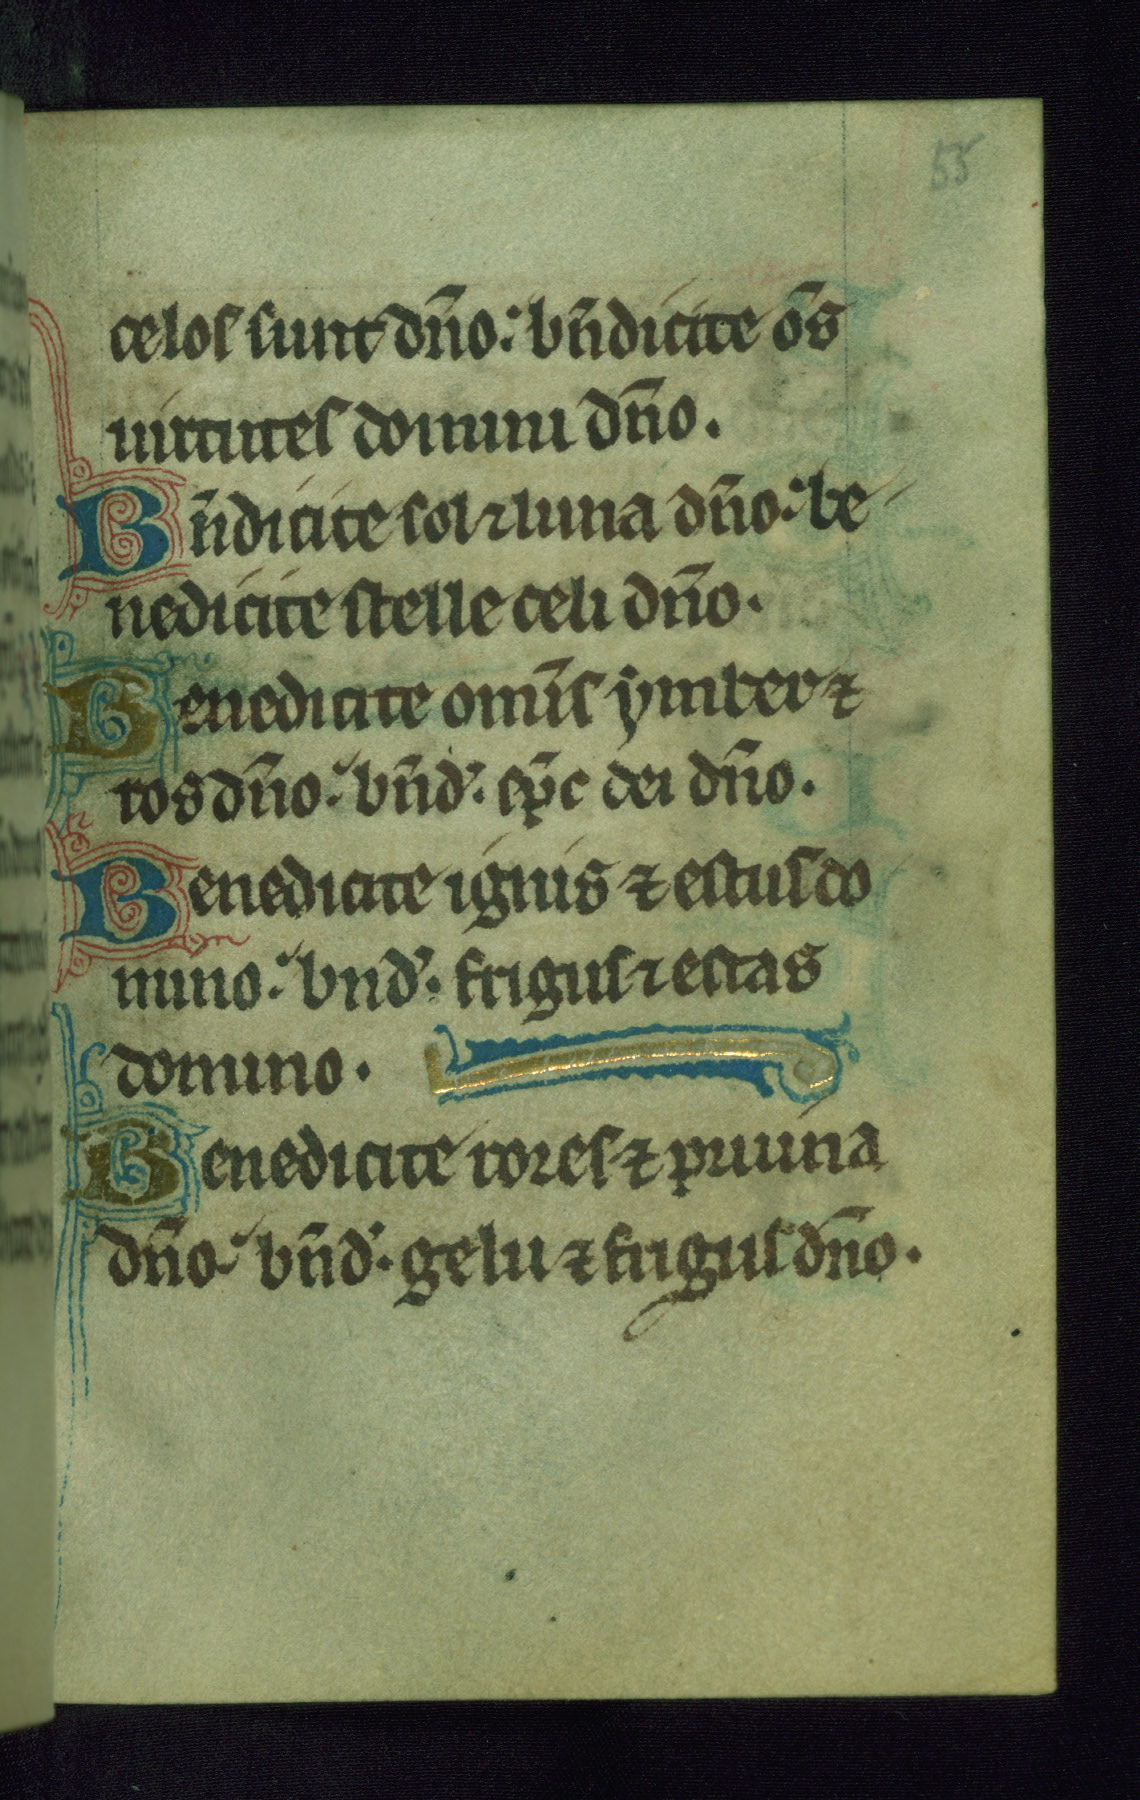 55
celos sunt dño: bñdicite õs
uirtutes domini dño.
Bñdicite sol ⁊ luna dño: be
nedicite stelle celi dño.
Benedicite om̃is ẏmber ⁊
ros dño: bñd'. sp̃c dei dño.
Benedicite ignis ⁊ estus do
mino: bnd'. frigus ⁊ estas
domino.
Benedicite rores ⁊ pruina
dño: bñd'. gelu ⁊ frigus dño.